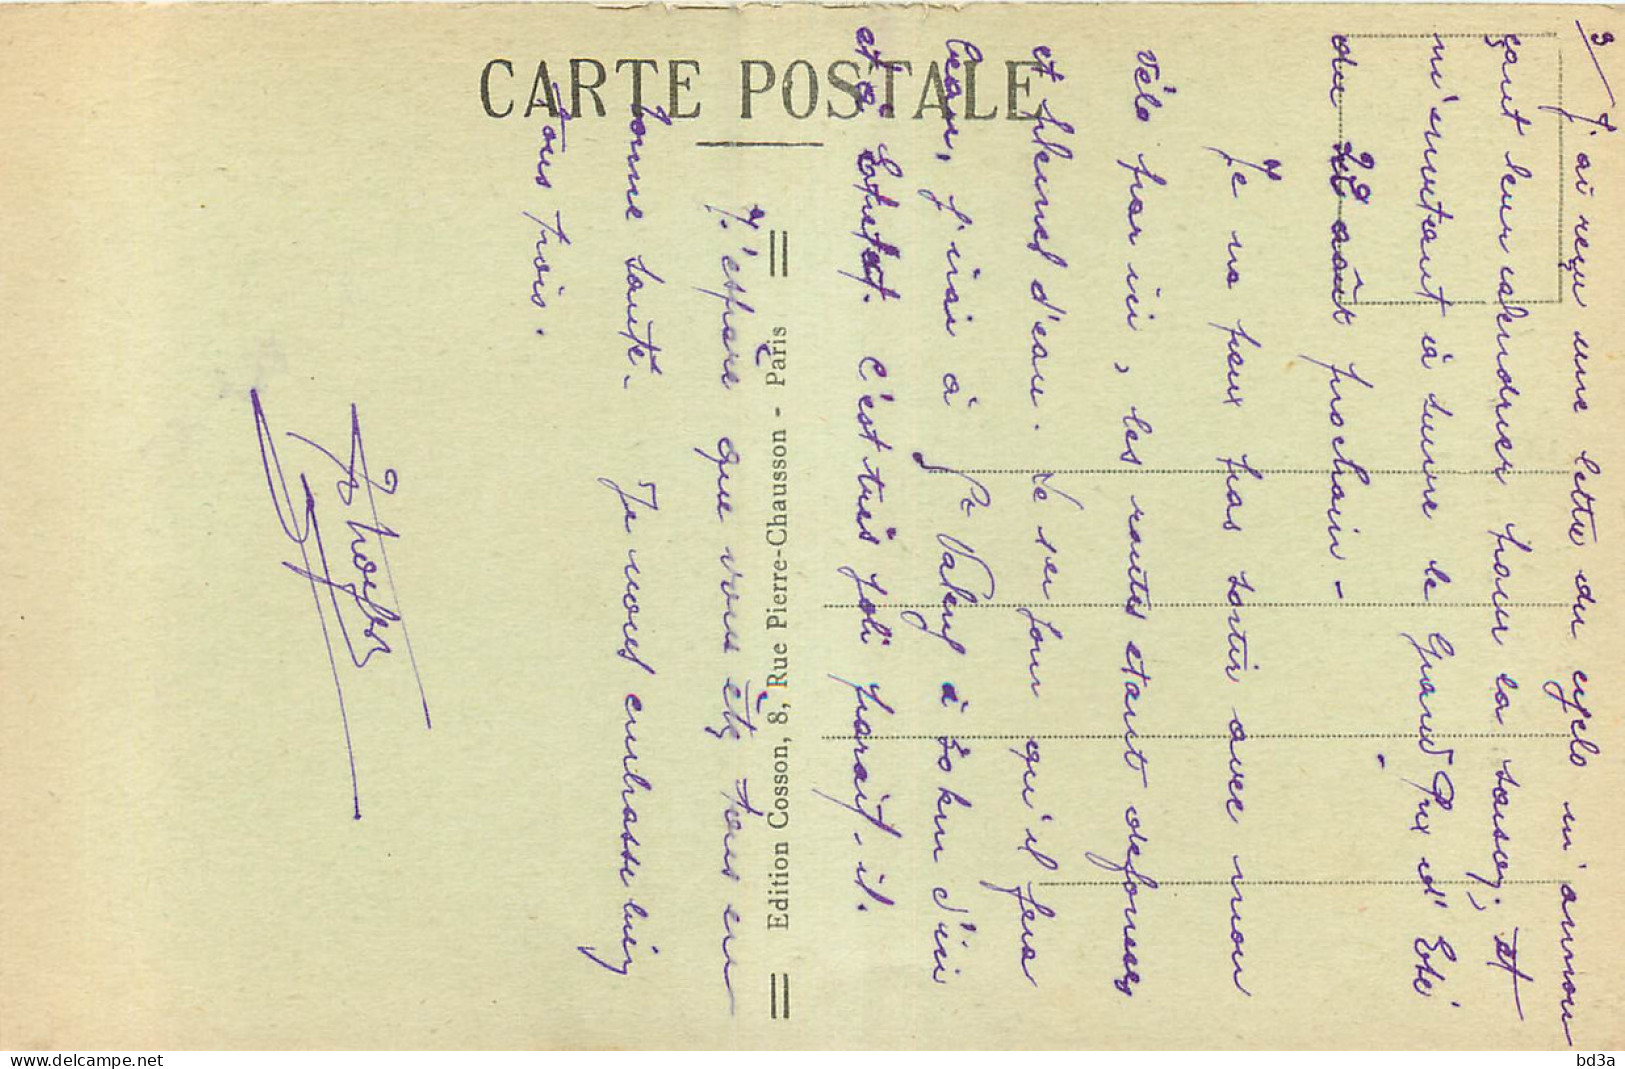 CARTE POSTALE
Edition Cosson, 8, Rue Pierre-Chausson - Paris
3/ J'ai reçu une lettre du vyelo m'annon
çant leur calendrier pour la saison, et
m'invitant à suivre le Grand Prix d'Eté
du 29 août prochain -
Je ne peux pas sortir avec mon
vélo par ici, les routes etant defoncees
et pleines d'eau. Le 1er jour qu'il fera
beau, j'irai à St Valery à 30 km d'ici
et à Etretat. C'est très joli parait-il.
J'espère que vous êtes tous en
bonne santé. Je vous embrasse bien
tous trois.
www.delcampe.net
bd3a